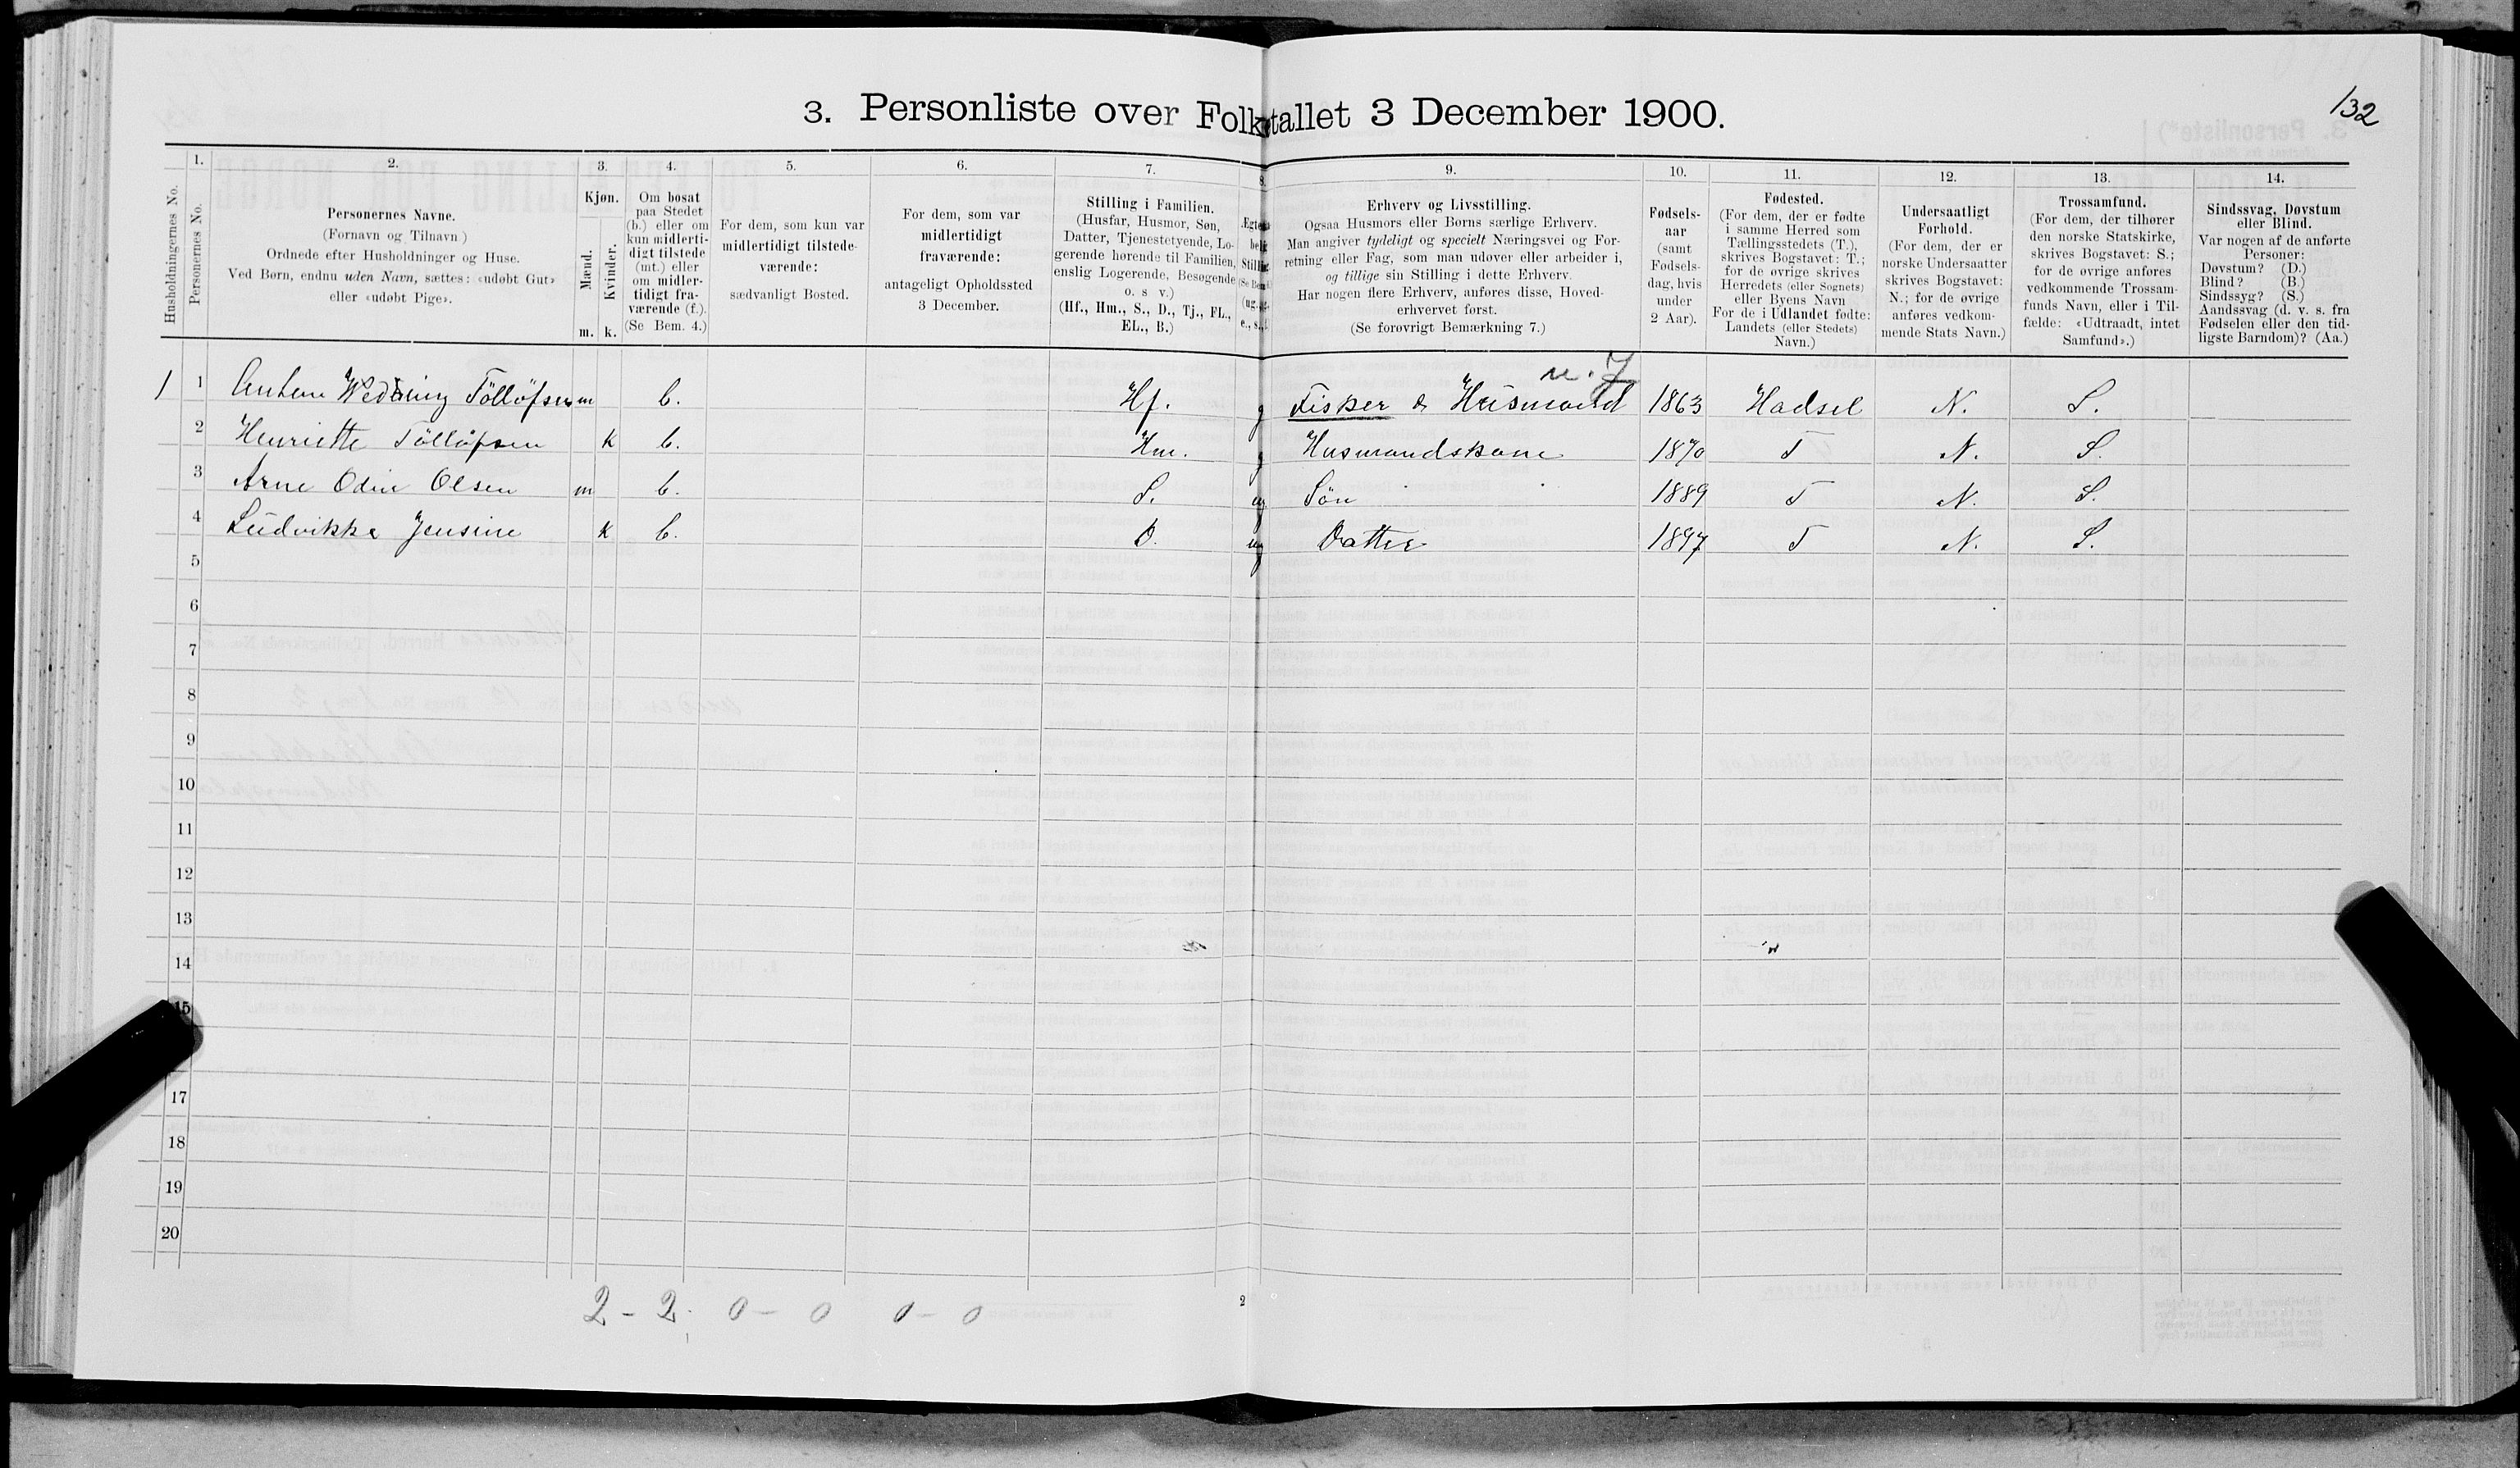 132
3. Personliste over Folketallet 3 December 1900.
1. 2. 3. 4. 5. 6. 7. 8. 9. 10. 11. 12. 13. 14.
Husholdningernes No.
Personernes No.
Personernes Navne.
(Fornavn og Tilnavn)
Ordnede efter Husholdninger og Huse.
Ved Børn, endnu uden Navn, sættes: «udøbt Gut»
eller «udøbt Pige».
Kjøn.
Mænd.
Kvinder.
m. k.
Om bosat
paa Stedet
(b.) eller om
kun midlerti-
digt tilstede
(mt.) eller
om midler-
tidigt fra-
værende (f.).
(Se Bem. 4.)
For dem, som kun var
midlertidigt tilstede-
værende:
sædvanligt Bosted.
For dem, som var
midlertidigt
fraværende:
antageligt Opholdssted
3 December.
Stilling i Familien.
(Husfar, Husmor, Søn,
Datter, Tjenestetyende, Lo-
gerende hørende til Familien,
enslig Logerende, Besøgende
o. s v.)
(Hf., Hm., S., D., Tj., FL.,
EL., B.)
Erhverv og Livsstilling.
Ogsaa Husmors eller Børns særlige Erhverv.
Man angiver tydeligt og specielt Næringsvei og For-
retning eller Fag, som man udøver eller arbeider i,
og tillige sin Stilling i dette Erhverv.
Har nogen flere Erhverv, anføres disse, Hoved-
erhvervet først.
(Se forøvrigt Bemærkning 7.)
Fødsels-
aar
(samt
Fødsels-
dag, hvis
under
2 Aar).
Fødested.
(For dem, der er fødte
i samme Herred som
Tællingsstedets (T.),
skrives Bogstavet: T.;
for de øvrige skrives
Herredets (eller Sognets)
eller Byens Navn
For de i Udlandet fødte:
Landets (eller Stedets)
Navn.)
Undersaatligt
Forhold.
(For dem, der er
norske Undersaatter
skrives Bogstavet:
N.; for de øvrige
anføres vedkom-
mende Stats Navn.)
Trossamfund.
(For dem, der tilhører
den norske Statskirke,
skrives Bogstavet: S.;
for de øvrige anføres
vedkommende Trossam-
funds Navn, eller i Til-
fælde: «Udtraadt, intet
Samfund».)
Sindssvag, Døvstum
eller Blind.
Var nogen af de anførte
Personer:
Døvstum? (D.)
Blind? (B.)
Sindssyg? (S.)
Aandssvag (d. v. s. fra
Fødselen eller den tid-
ligste Barndom)? (Aa.)
1 1 Anton Tölløfsen m b. Hf. g Fisker & Husmand 1863 Hadsel N. S.
2 Henriette Tölløfsen k b. Hm. g Husmandskone 1870 T N. S.
3 Arne Odin Olsen m b. S. ug Sön 1889 T N. S.
4 Ludvikke Jensine k b. D. ug Datter 1897 T N. S.
5
6
7
8
9
10
11
12
13
14
15
17
18
19
20
2 - 2 0 - 0 0 - 0
2